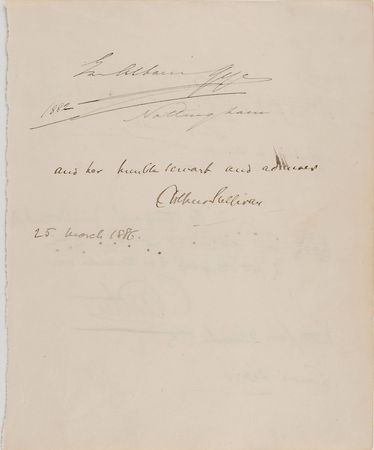 Em Albani Gye
1882
Nottingham
and her humble servant and admirer
Arthur Sullivan
25 March 1886.